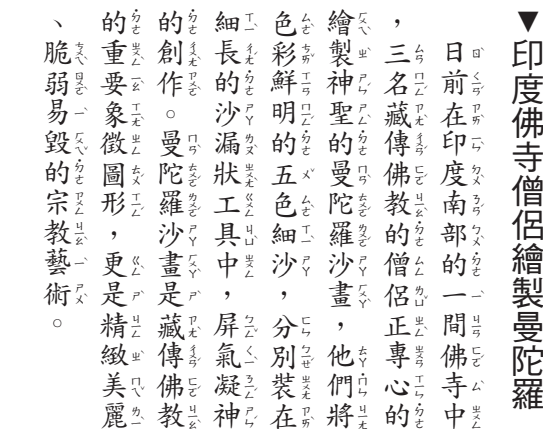 ▼印度佛寺僧侶繪製曼陀羅
日前在印度南部的一間佛寺中
，三名藏傳佛教的僧侶正專心的
繪製神聖的曼陀羅沙畫，他們將
色彩鮮明的五色細沙，分別裝在
細長的沙漏狀工具中，屏氣凝神
的創作。曼陀羅沙畫是藏傳佛教
的重要象徵圖形，更是精緻美麗
、脆弱易毀的宗教藝術。